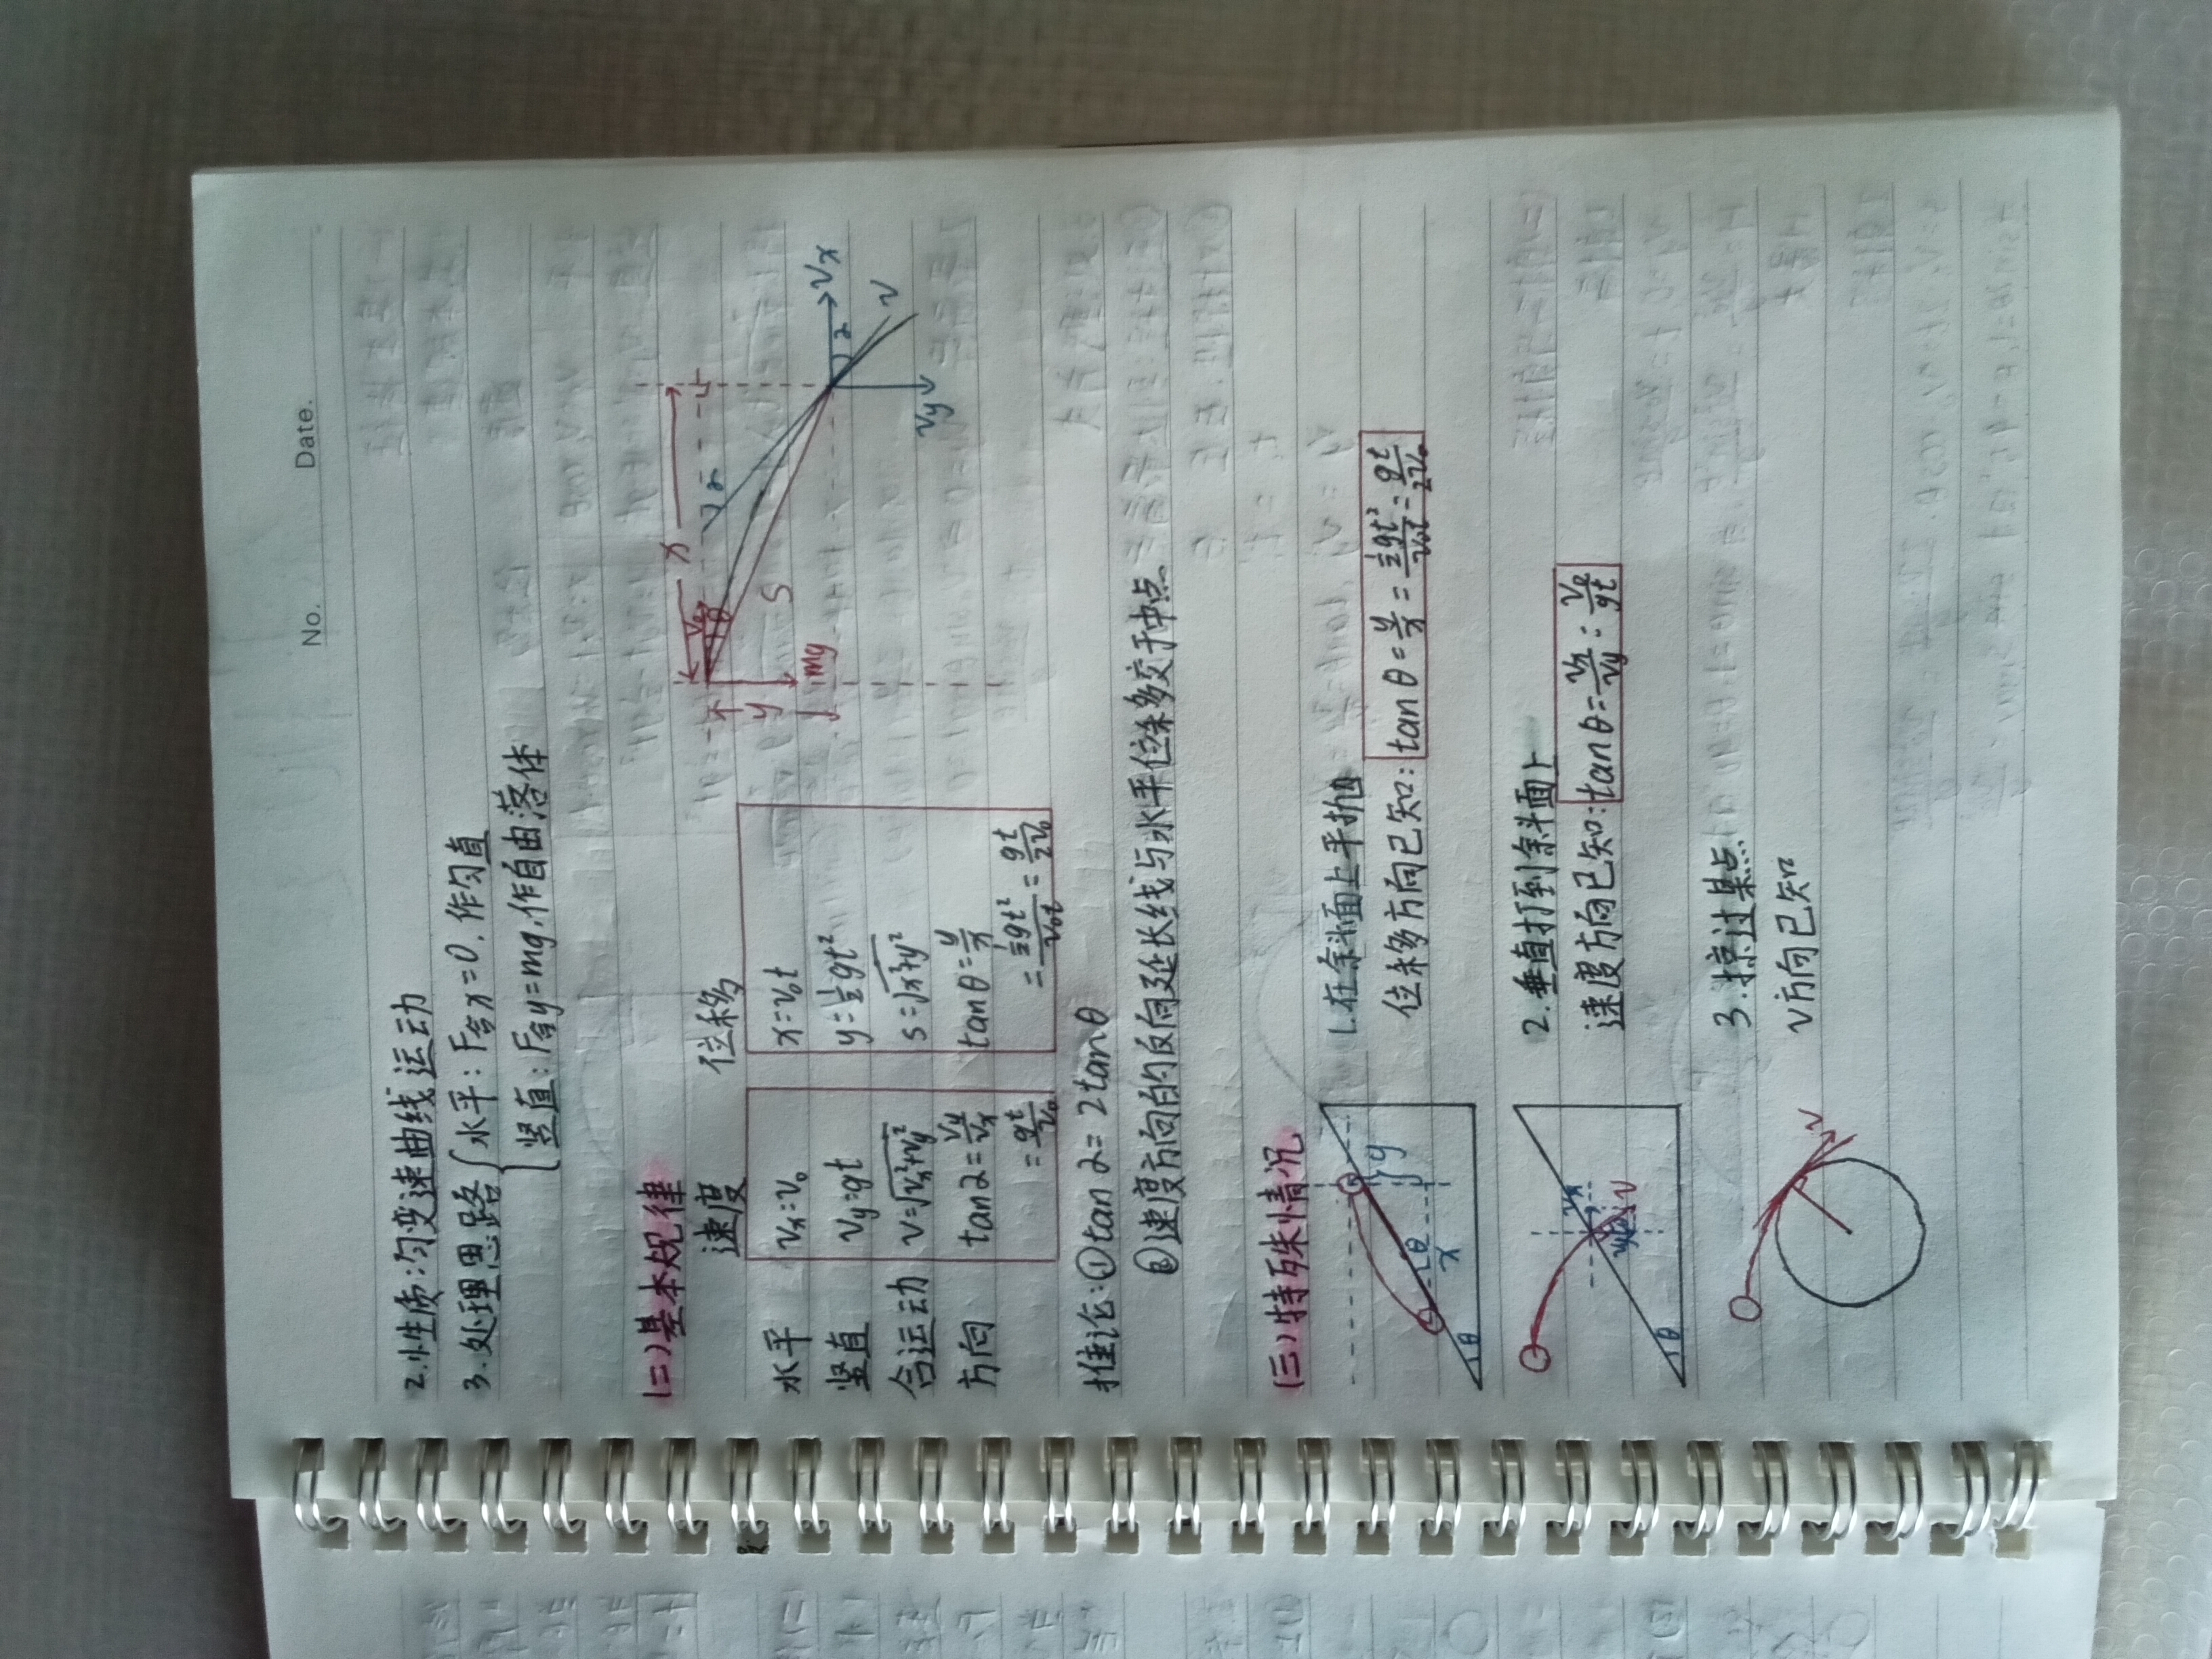 No.
Date.
2.性质:匀变速曲线运动
3.处理思路{水平:F合x=0,作匀直
竖直:F合y=mg,作自由落体
(二)基本规律
速度 位移
水平 vx=v₀ x=v₀t
竖直 vy=gt y=½gt²
合运动 v=√(vx²+vy²) s=√(x²+y²)
方向 tanα=vy/vx tanθ=y/x
=gt/v₀ =½gt²/v₀t=gt/2v₀
x
v₀
θ
y
mg
S
α
α
vx
vy
v
推论:①tanα=2tanθ
②速度方向的反向延长线与水平位移交于中点
(三)特殊情况
1.在斜面上平抛
位移方向已知:tanθ=y/x=½gt²/v₀t=gt/2v₀
y
θ
x
θ
2.垂直打到斜面上
速度方向已知:tanθ=vx/vy=v₀/gt
v
θ
3.掠过某点
v方向已知
v